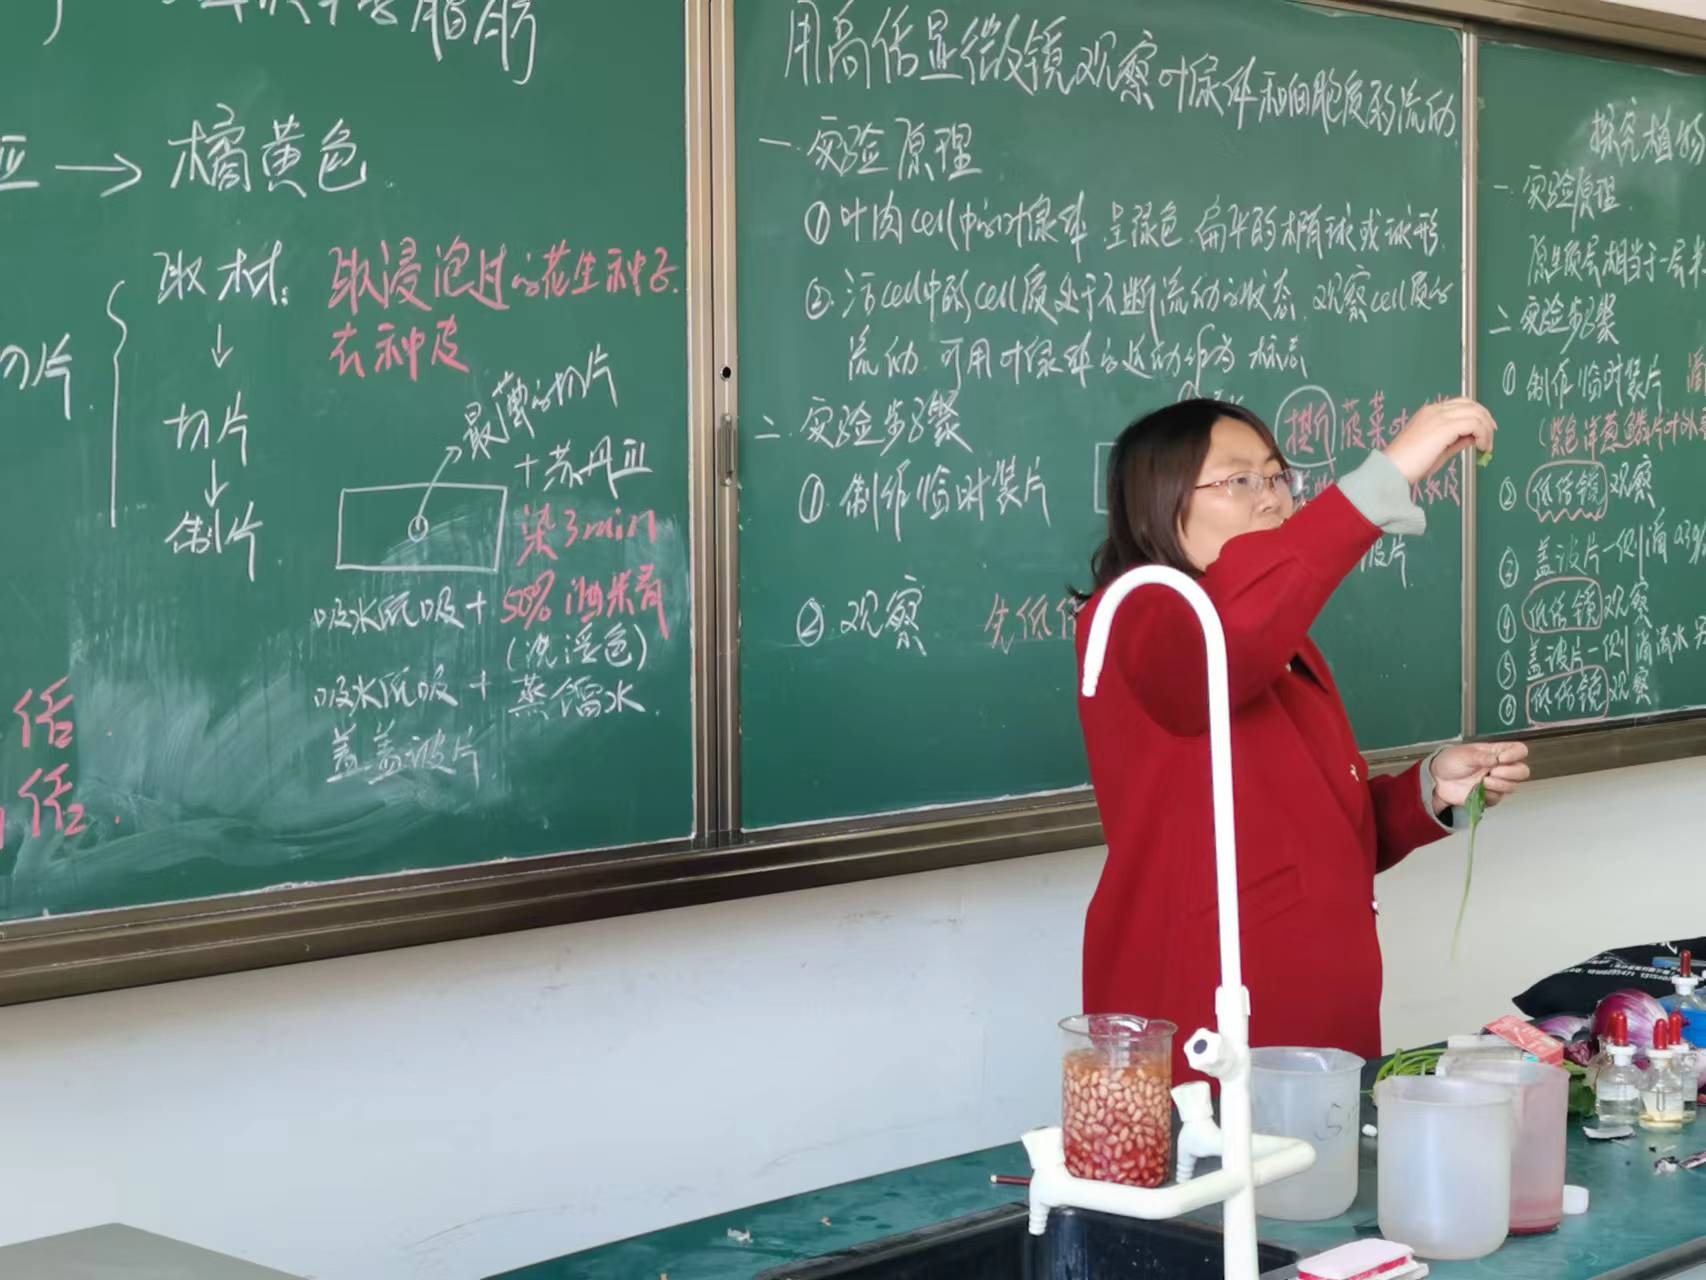 → 橘黄色
取材: 取浸泡过的花生种子.
去种皮
↓
切片
↓
制片
切片
最薄的切片
+苏丹Ⅲ
染3min
吸水纸吸+50%酒精
(洗浮色)
吸水纸吸+蒸馏水.
盖盖玻片
用高倍显微镜观察叶绿体和细胞质的流动
一.实验原理
①叶肉cell中的叶绿体 呈绿色 扁平的椭球或球形.
②活cell中的cell质处于不断流动的状态.观察cell质的
流动.可用叶绿体的运动作为标志
二.实验步骤
①制作临时装片
菠菜叶
②观察 先低倍
探究植物
一.实验原理
原生质层相当于一层半
二.实验步骤
①制作临时装片 滴
(紫色洋葱鳞片叶外表
②低倍镜观察
③盖玻片一侧滴0.3g/
④低倍镜观察
⑤盖玻片一侧滴清水
⑥低倍镜观察